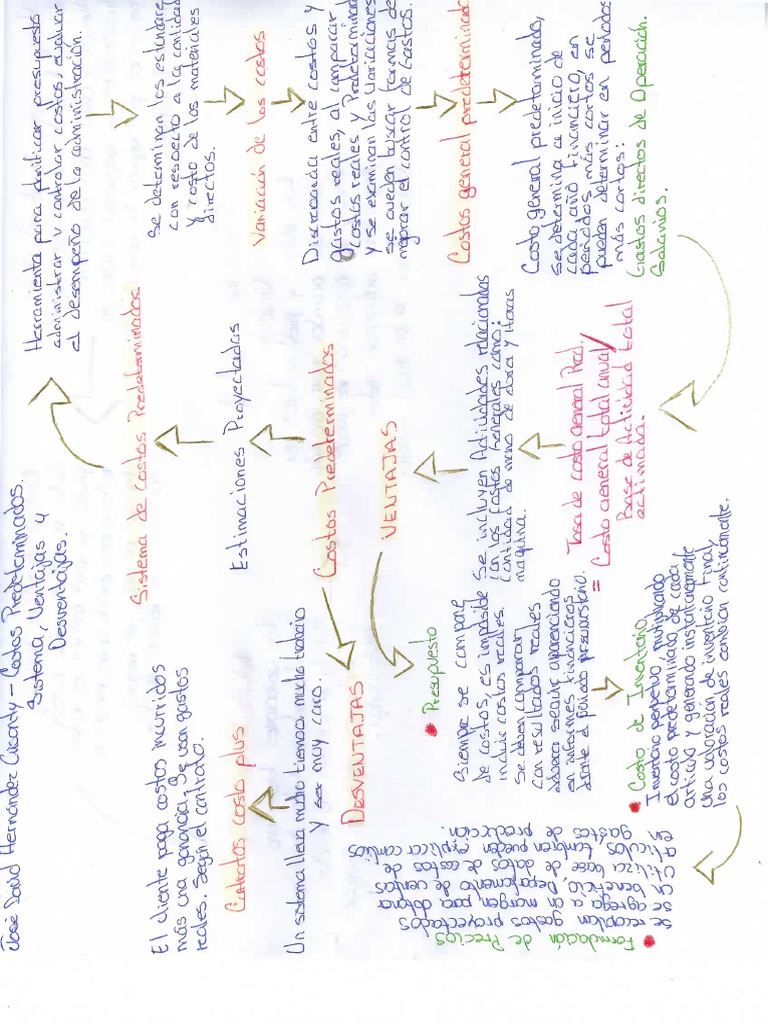 José David Hernández
Costos Predeterminados.
Sistema, Ventajas y
Desventajas.
Herramienta para planificar presupuesto
administrar y controlar costos, evaluar
el desempeño de la administración.
Sistema de costos Predeterminados
Se determinan los estándares
con respecto a la cantidad
y costo de los materiales
directos.
Estimaciones Proyectadas
Variación de los costos
Costos Predeterminados
Discrepancia entre costos y
gastos reales, al comparar
costos reales y Predeterminados
y se examinan las variaciones
se pueden buscar formas de
mejorar el control de Gastos.
Costos general predeterminado
Costo general predeterminado,
se determina a inicio de
cada año financiero, en
periodos más cortos, se
pueden determinar en periodos
más cortos:
Gastos directos de Operación.
Salarios.
Tasa de costo General Pred.
= Costo General total anual/
Base de Actividad total
estimada.
Se incluyen Actividades relacionadas
con los Costos Generales como:
Cantidad de mano de obra y Horas
maquina.
VENTAJAS
• Presupuesto
Siempre se compare
de costos, es imposible
incluir costos reales.
Se deben comparar
con resultados reales
seguir apareciendo
en informes financieros
el periodo presupuestario.
• Costo de Inventario.
Inventario perpetuo, multiplicando
el costo predeterminado de cada
artículo y generado instantáneamente
una valoración de inventario final,
los costos reales cambian continuamente.
• Formulación de Precios
se recopilan gastos proyectados
se agrega a un margen para
un beneficio, Departamento de ventas
Utiliza base de datos de costos de
artículos, también pueden explicar cambios
en gastos de producción.
DESVENTAJAS
Un sistema lleva mucho tiempo, mucho trabajo
y ser muy caro.
Contratos costo plus
El cliente paga costos incurridos
más una ganancia, Se usan gastos
reales. Según el contrato.